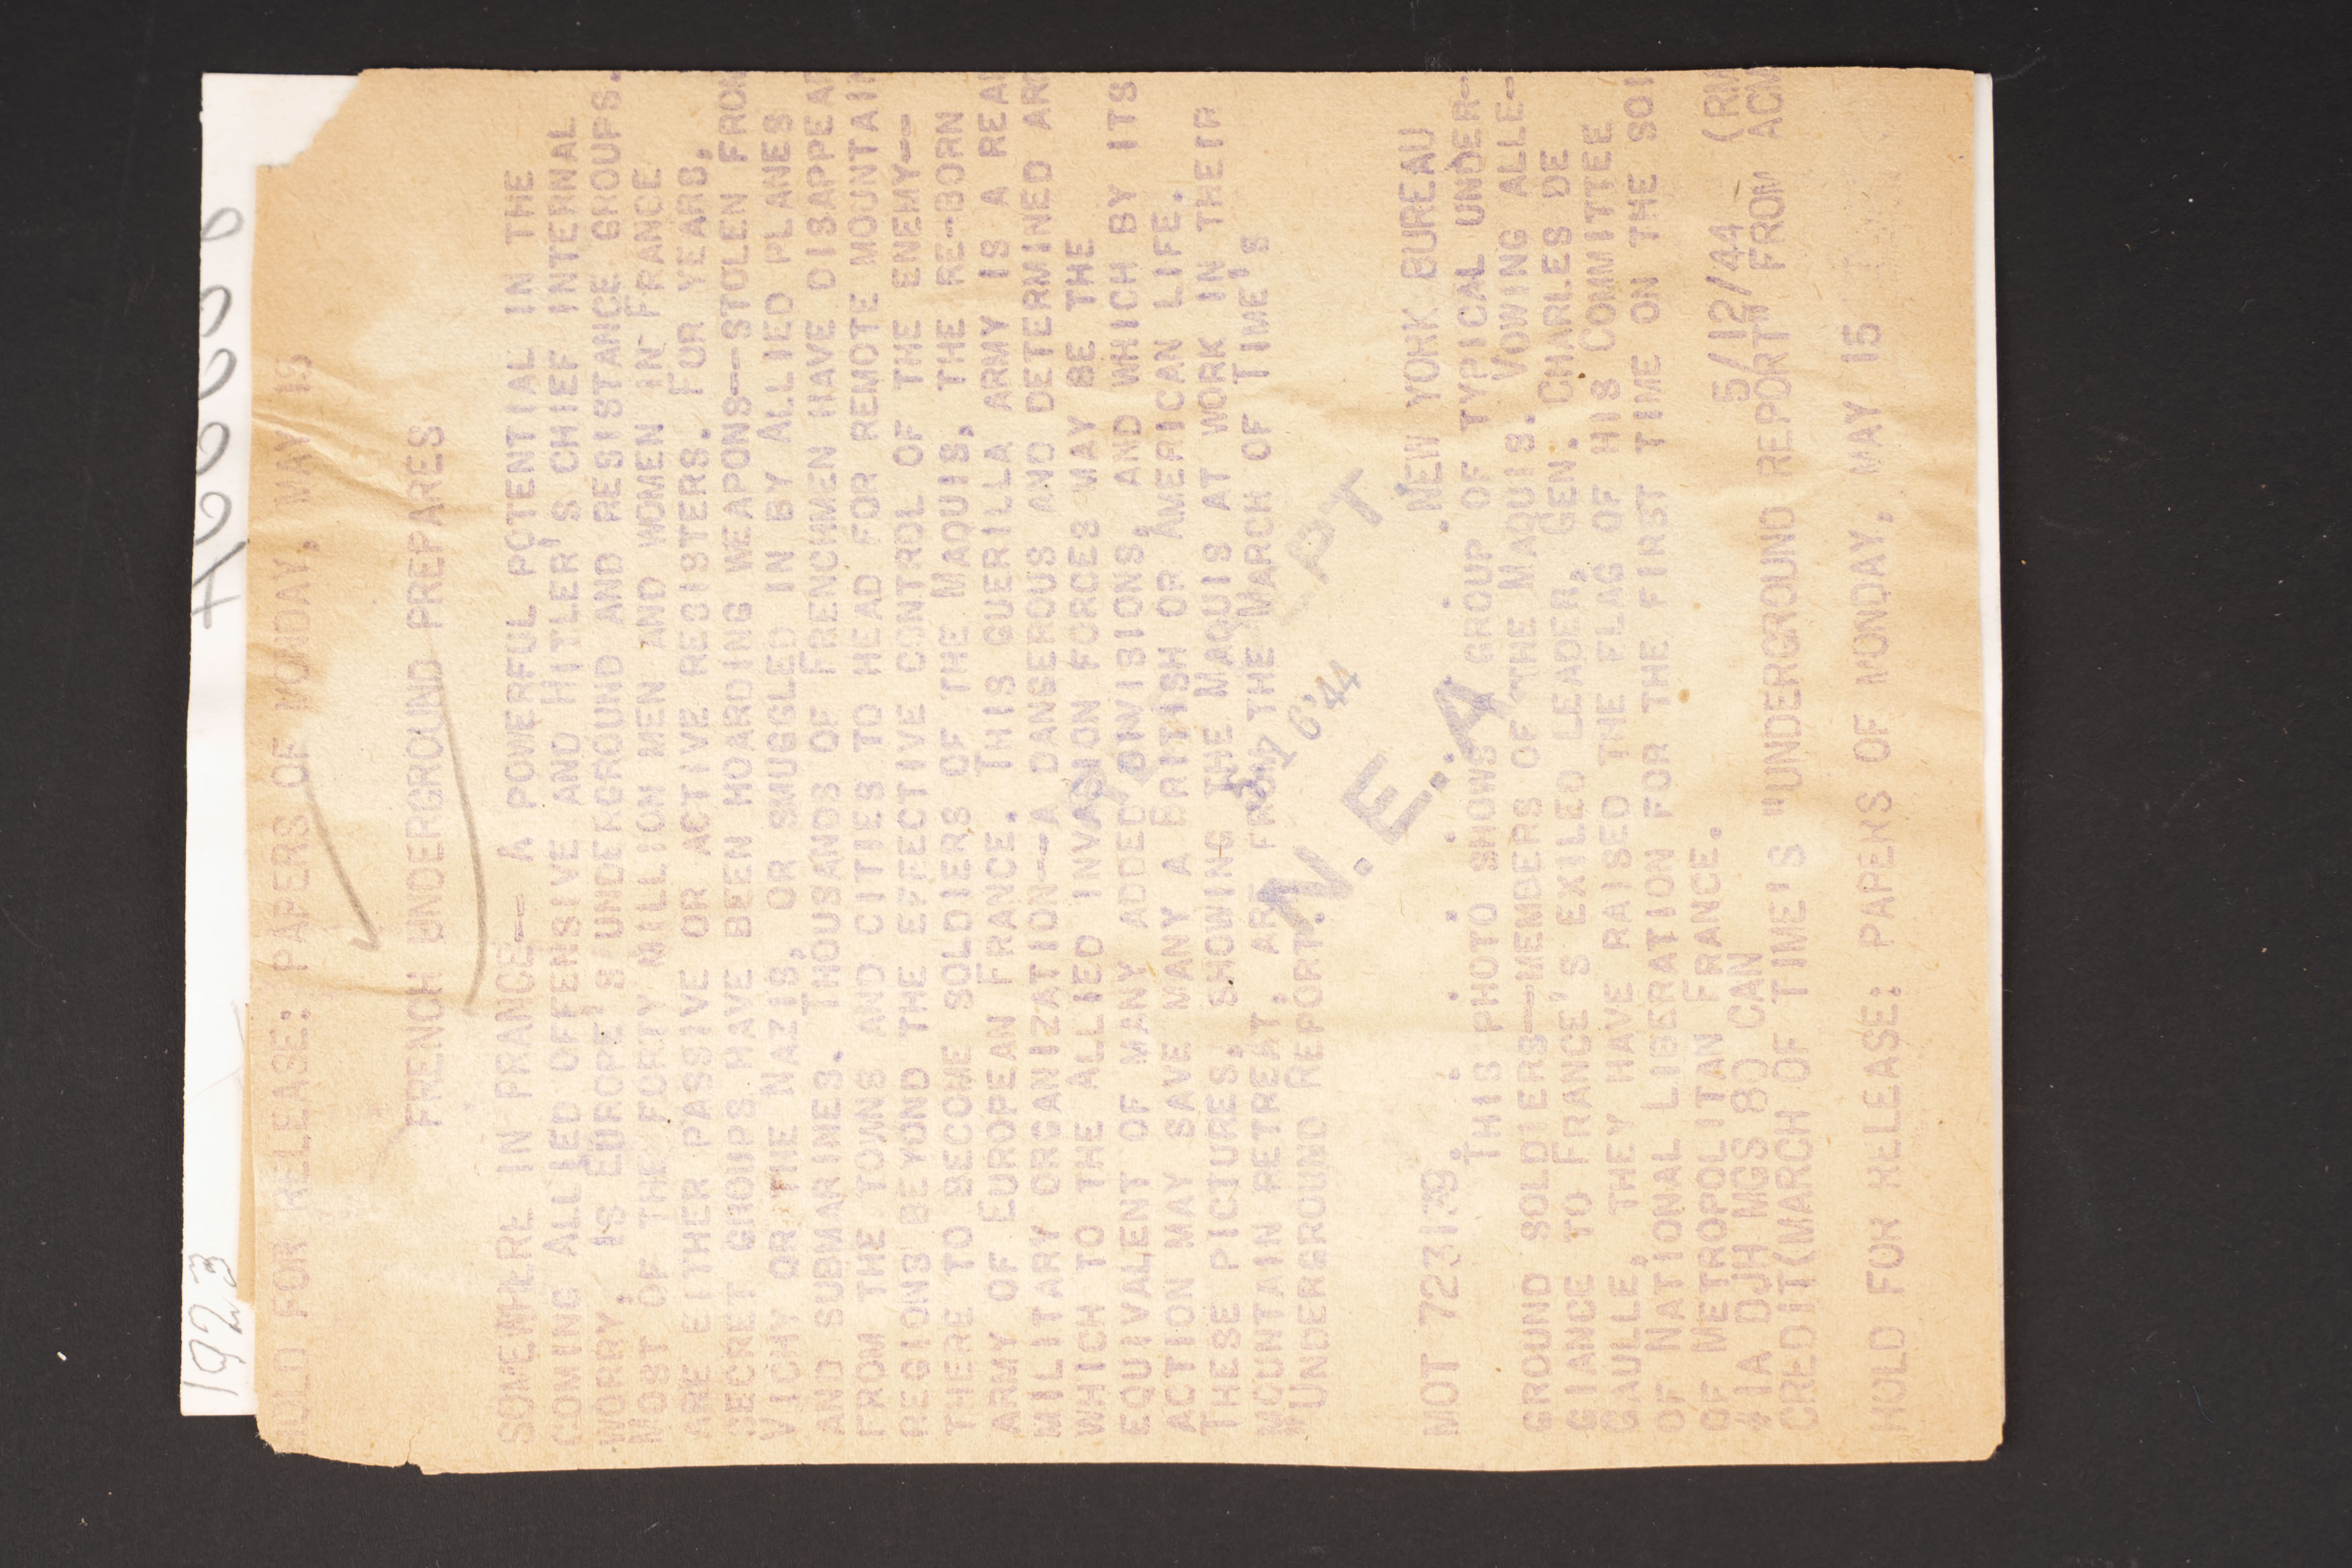 HOLD FOR RELEASE: PAPERS OF MONDAY, MAY 15
FRENCH UNDERGROUND PREPARES
SOMEWHERE IN FRANCE-- A POWERFUL POTENTIAL IN THE
COMING ALLIED OFFENSIVE AND HITLER'S CHIEF INTERNAL
WORRY, IS EUROPE'S UNDERGROUND AND RESISTANCE GROUPS.
MOST OF THE FORTY MILLION MEN AND WOMEN IN FRANCE
ARE EITHER PASSIVE OR ACTIVE RESISTERS. FOR YEARS,
SECRET GROUPS HAVE BEEN HOARDING WEAPONS--STOLEN FROM
VICHY OR THE NAZIS, OR SMUGGLED IN BY ALLIED PLANES
AND SUBMARINES. THOUSANDS OF FRENCHMEN HAVE DISAPPEAR
FROM THE TOWNS AND CITIES TO HEAD FOR REMOTE MOUNTAIN
REGIONS BEYOND THE EFFECTIVE CONTROL OF THE ENEMY--
THERE TO BECOME SOLDIERS OF THE MAQUIS, THE RE-BORN
ARMY OF EUROPEAN FRANCE. THIS GUERILLA ARMY IS A REAL
MILITARY ORGANIZATION--A DANGEROUS AND DETERMINED ARM
WHICH TO THE ALLIED INVASION FORCES MAY BE THE
EQUIVALENT OF MANY ADDED DIVISIONS, AND WHICH BY ITS
ACTION MAY SAVE MANY A BRITISH OR AMERICAN LIFE.
THESE PICTURES, SHOWING THE MAQUIS AT WORK IN THEIR
MOUNTAIN RETREAT, ARE FROM THE MARCH OF TIME'S
"UNDERGROUND REPORT."
N.E.A.
MOT 723139. . . . . . . . NEW YORK BUREAU
THIS PHOTO SHOWS A GROUP OF TYPICAL UNDER-
GROUND SOLDIERS--MEMBERS OF THE MAQUIS. VOWING ALLE-
GIANCE TO FRANCE'S EXILED LEADER, GEN. CHARLES DE
GAULLE, THEY HAVE RAISED THE FLAG OF HIS COMMITTEE
OF NATIONAL LIBERATION FOR THE FIRST TIME ON THE SOI
OF METROPOLITAN FRANCE.
#1A DJH MGS 80 CAN 5/12/44 (RM
CREDIT(MARCH OF TIME'S "UNDERGROUND REPORT" FROM ACM
HOLD FOR RELEASE: PAPERS OF MONDAY, MAY 15
1923